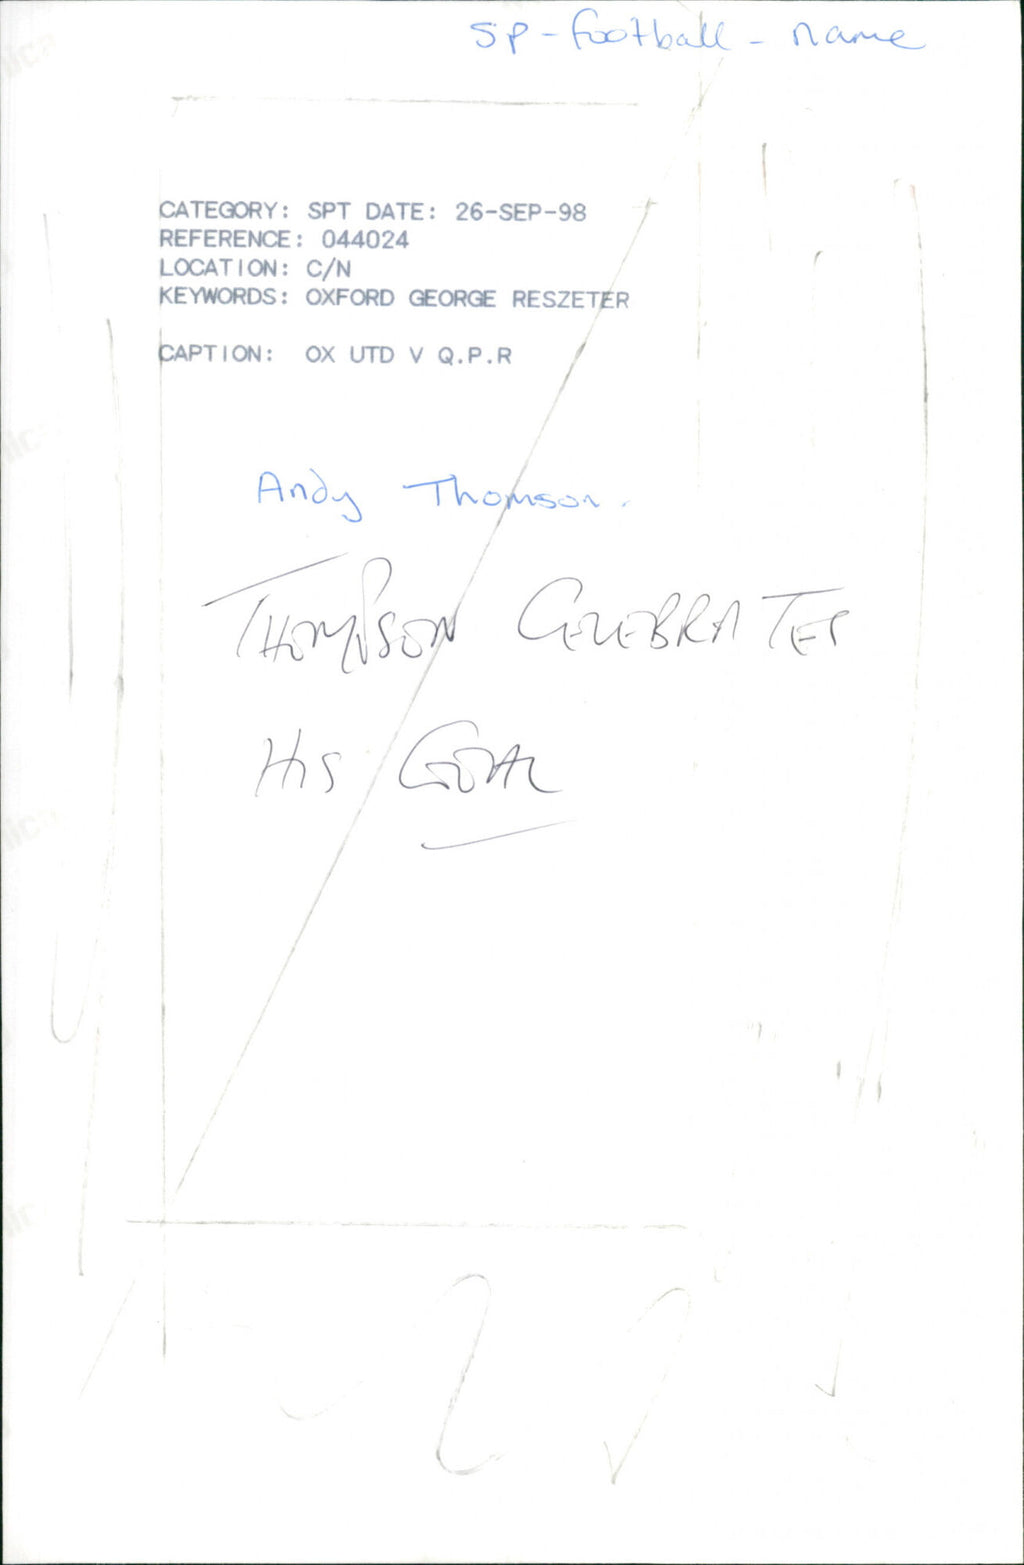 Sp - football - name
CATEGORY: SPT DATE: 26-SEP-98
REFERENCE: 044024
LOCATION: C/N
KEYWORDS: OXFORD GEORGE RESZETER
CAPTION: OX UTD V Q.P.R
Andy Thomson.
THOMPSON CELEBRATES
HIS GOAL